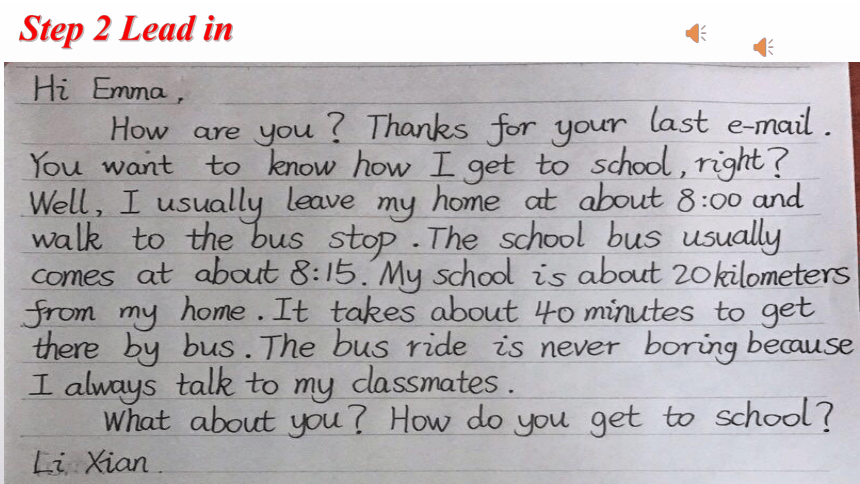 Step 2 Lead in
Hi Emma,
How are you? Thanks for your last e-mail.
You want to know how I get to school, right?
Well, I usually leave my home at about 8:00 and
walk to the bus stop. The school bus usually
comes at about 8:15. My school is about 20 kilometers
from my home. It takes about 40 minutes to get
there by bus. The bus ride is never boring because
I always talk to my classmates.
What about you? How do you get to school?
Li Xian